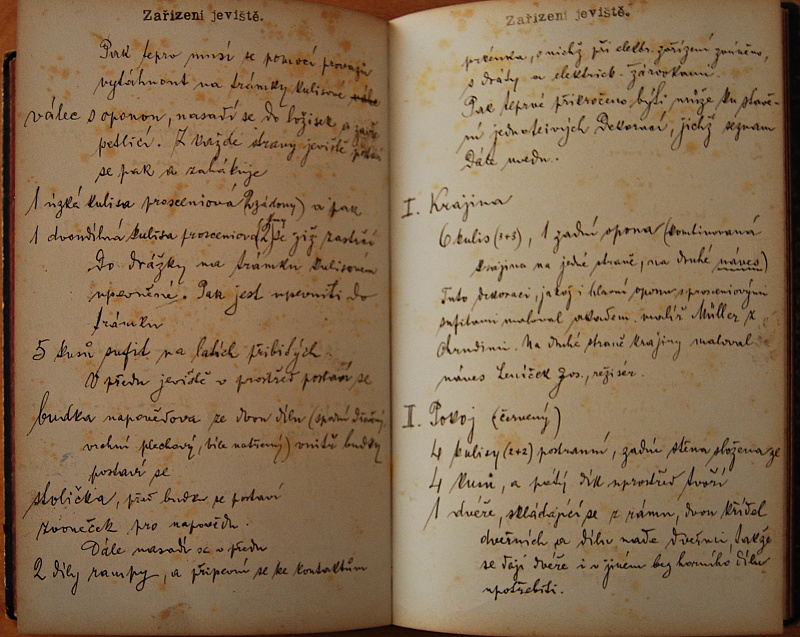 Zařízení jeviště.
Pak teprv musí se pomocí provazu
vytáhnout na trámky kulisové
válec s oponou, nasadí se do ložisek a zajistí
petlicí. Z každé strany jeviště postaví
se pak a zahákuje
1 úzká kulisa prosceniová (vzádou) a pak
1 dvoudílná kulisa prosceniová
do drážky na trámku kulisovém
upevněné. Pak jest upevniti do
trámku
5 kusů sufit na latích přibitých.
V předu jeviště v prostřed postaví se
budka napovědova ze dvou dílů (spodní dřevěný,
vrchní plechový, bíle natřený) vnitř budky
postaví se
stolička, před budku se postaví
zvoneček pro nápovědu.
Dále nasadí se v předu
2 díly rampy, a připevní se ke kontaktům
Zařízení jeviště.
prkénka, s nichž při elektr. zařízení
s dráty a elektrick. žárovkami.
Pak teprvé přikročeno býti může ku stavě-
ní jednotlivých Dekorací, jichž seznam
Dále vedu.
I. Krajina
6 kulis (3+3), 1 zadní opona (kombinovaná
krajina na jedné straně, na druhé náves)
Tuto dekoraci, jakož i hlavní oponu s prosceniovými
sufitami maloval akadem. malíř Müller z
Chrudimi. Na druhé straně krajiny maloval
náves Leníček Jos., režisér.
II. Pokoj (červený)
4 kulisy (2+2) postranní, zadní stěna složena ze
4 kusů, a pátý dík uprostřed tvoří
1 dvéře, skládající se z rámu, dvou křídel
dveřních a dílu nade dveřmi, takže
se dají dvéře i v jiném bez horního dílu
upotřebiti.